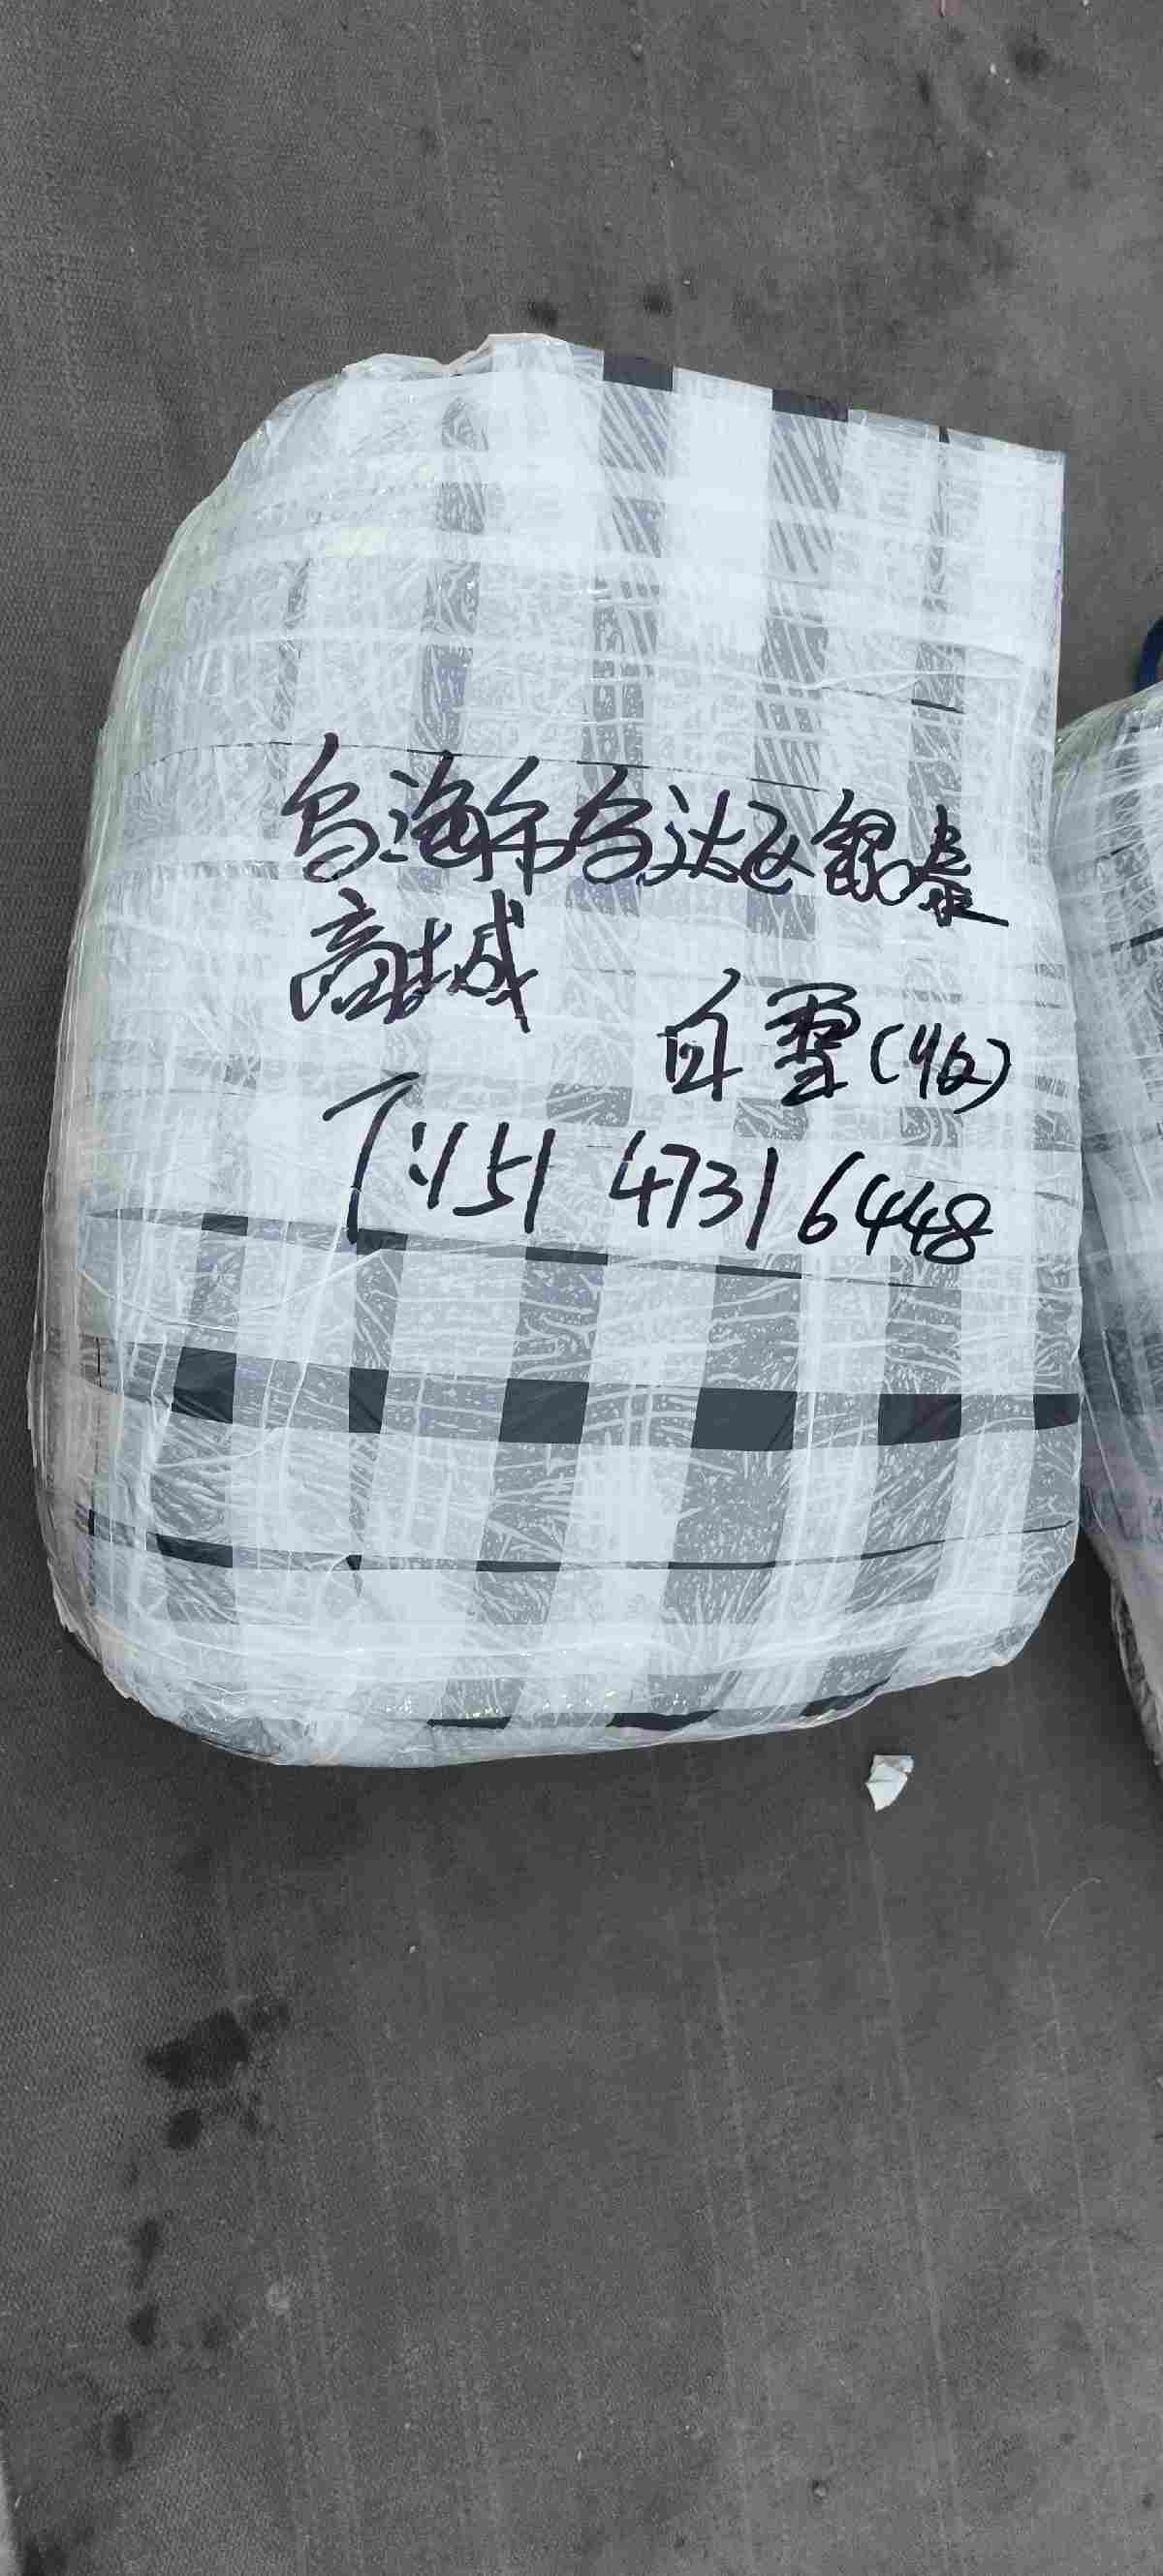 乌海市乌达区银泰
商城
白雪(收)
T:151 4731 6448